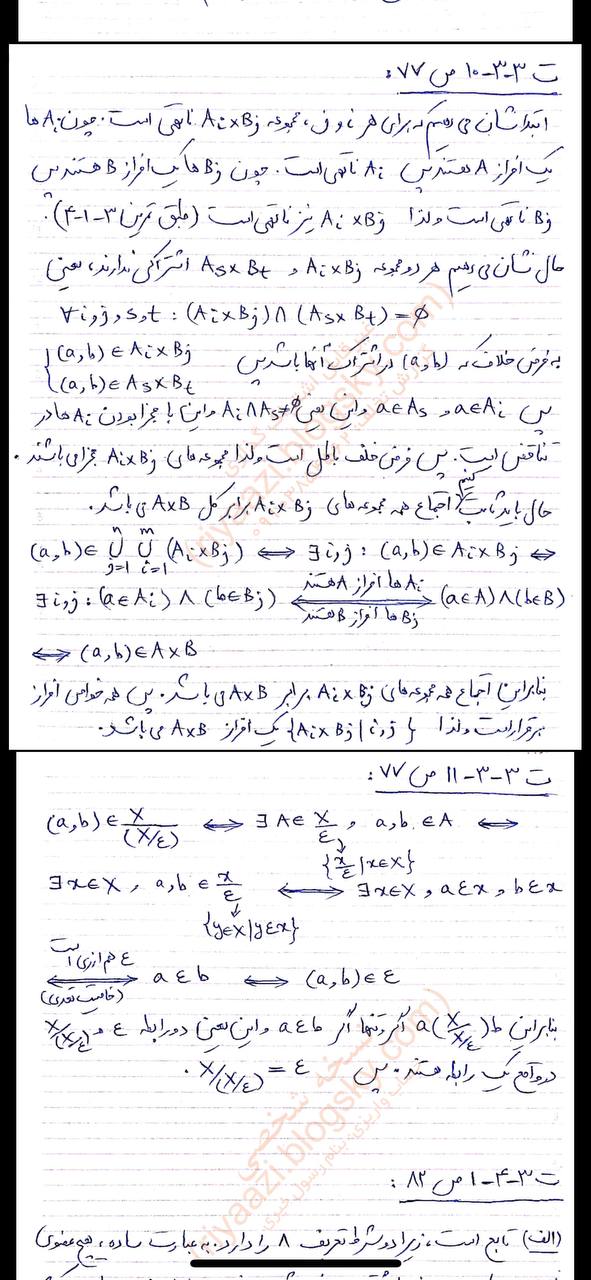 ت ۳-۳-۱۰ ص ۷۷:
ابتدا نشان می دهیم که برای هر i و j، مجموعه Ai×Bj ناتهی است. چون Ai ها
یک افراز A هستند پس Ai ناتهی است. چون Bj ها یک افراز B هستند پس
Bj ناتهی است و لذا Ai×Bj نیز ناتهی است (طبق تمرین ۳-۱-۴).
حال نشان می دهیم هر دو مجموعه Ai×Bj و As×Bt اشتراکی ندارند، یعنی
∀i,j,s,t : (Ai×Bj)∩(As×Bt)=∅
به فرض خلاف که (a,b) در اشتراک آنها باشد پس {(a,b)∈Ai×Bj
(a,b)∈As×Bt
پس a∈Ai و a∈As و این یعنی Ai∩As≠∅ و این با مجزا بودن Ai ها در
تناقض است. پس فرض خلف باطل است و لذا مجموعه های Ai×Bj مجزا می باشند.
حال باید ثابت کنیم اجتماع همه مجموعه های Ai×Bj برابر کل A×B می باشد.
(a,b)∈ ⋃_{j=1}^{n} ⋃_{i=1}^{m} (Ai×Bj) ⟺ ∃i,j : (a,b)∈Ai×Bj ⟺
Ai ها افراز A هستند
∃i,j : (a∈Ai)∧(b∈Bj) ⟺ (a∈A)∧(b∈B)
Bj ها افراز B هستند
⟺ (a,b)∈A×B
بنابراین اجتماع همه مجموعه های Ai×Bj برابر A×B می باشد. پس همه خواص افراز
برقرار است و لذا {Ai×Bj | i,j} یک افراز A×B می باشد.
ت ۳-۳-۱۱ ص ۷۷:
(a,b)∈ X/(X/ε) ⟺ ∃A∈ X/ε , a,b∈A ⟺
{x/ε | x∈X}
∃x∈X , a,b∈ x/ε ⟺ ∃x∈X , aεx , bεx
{y∈X | yεx}
ε هم ارزی است
⟺ aεb ⟺ (a,b)∈ε
(خاصیت تعدی)
بنابراین a(X/(X/ε))b اگر و تنها اگر aεb و این یعنی دو رابطه ε و X/(X/ε)
در واقع یک رابطه هستند. پس X/(X/ε) = ε.
ت ۳-۴-۱ ص ۸۲:
(الف) تابع است، زیرا دو شرط تعریف ۸ را دارد. به عبارت ساده، هیچ عضوی
نسخه شخصی
(riyaazi.blogsky.com)